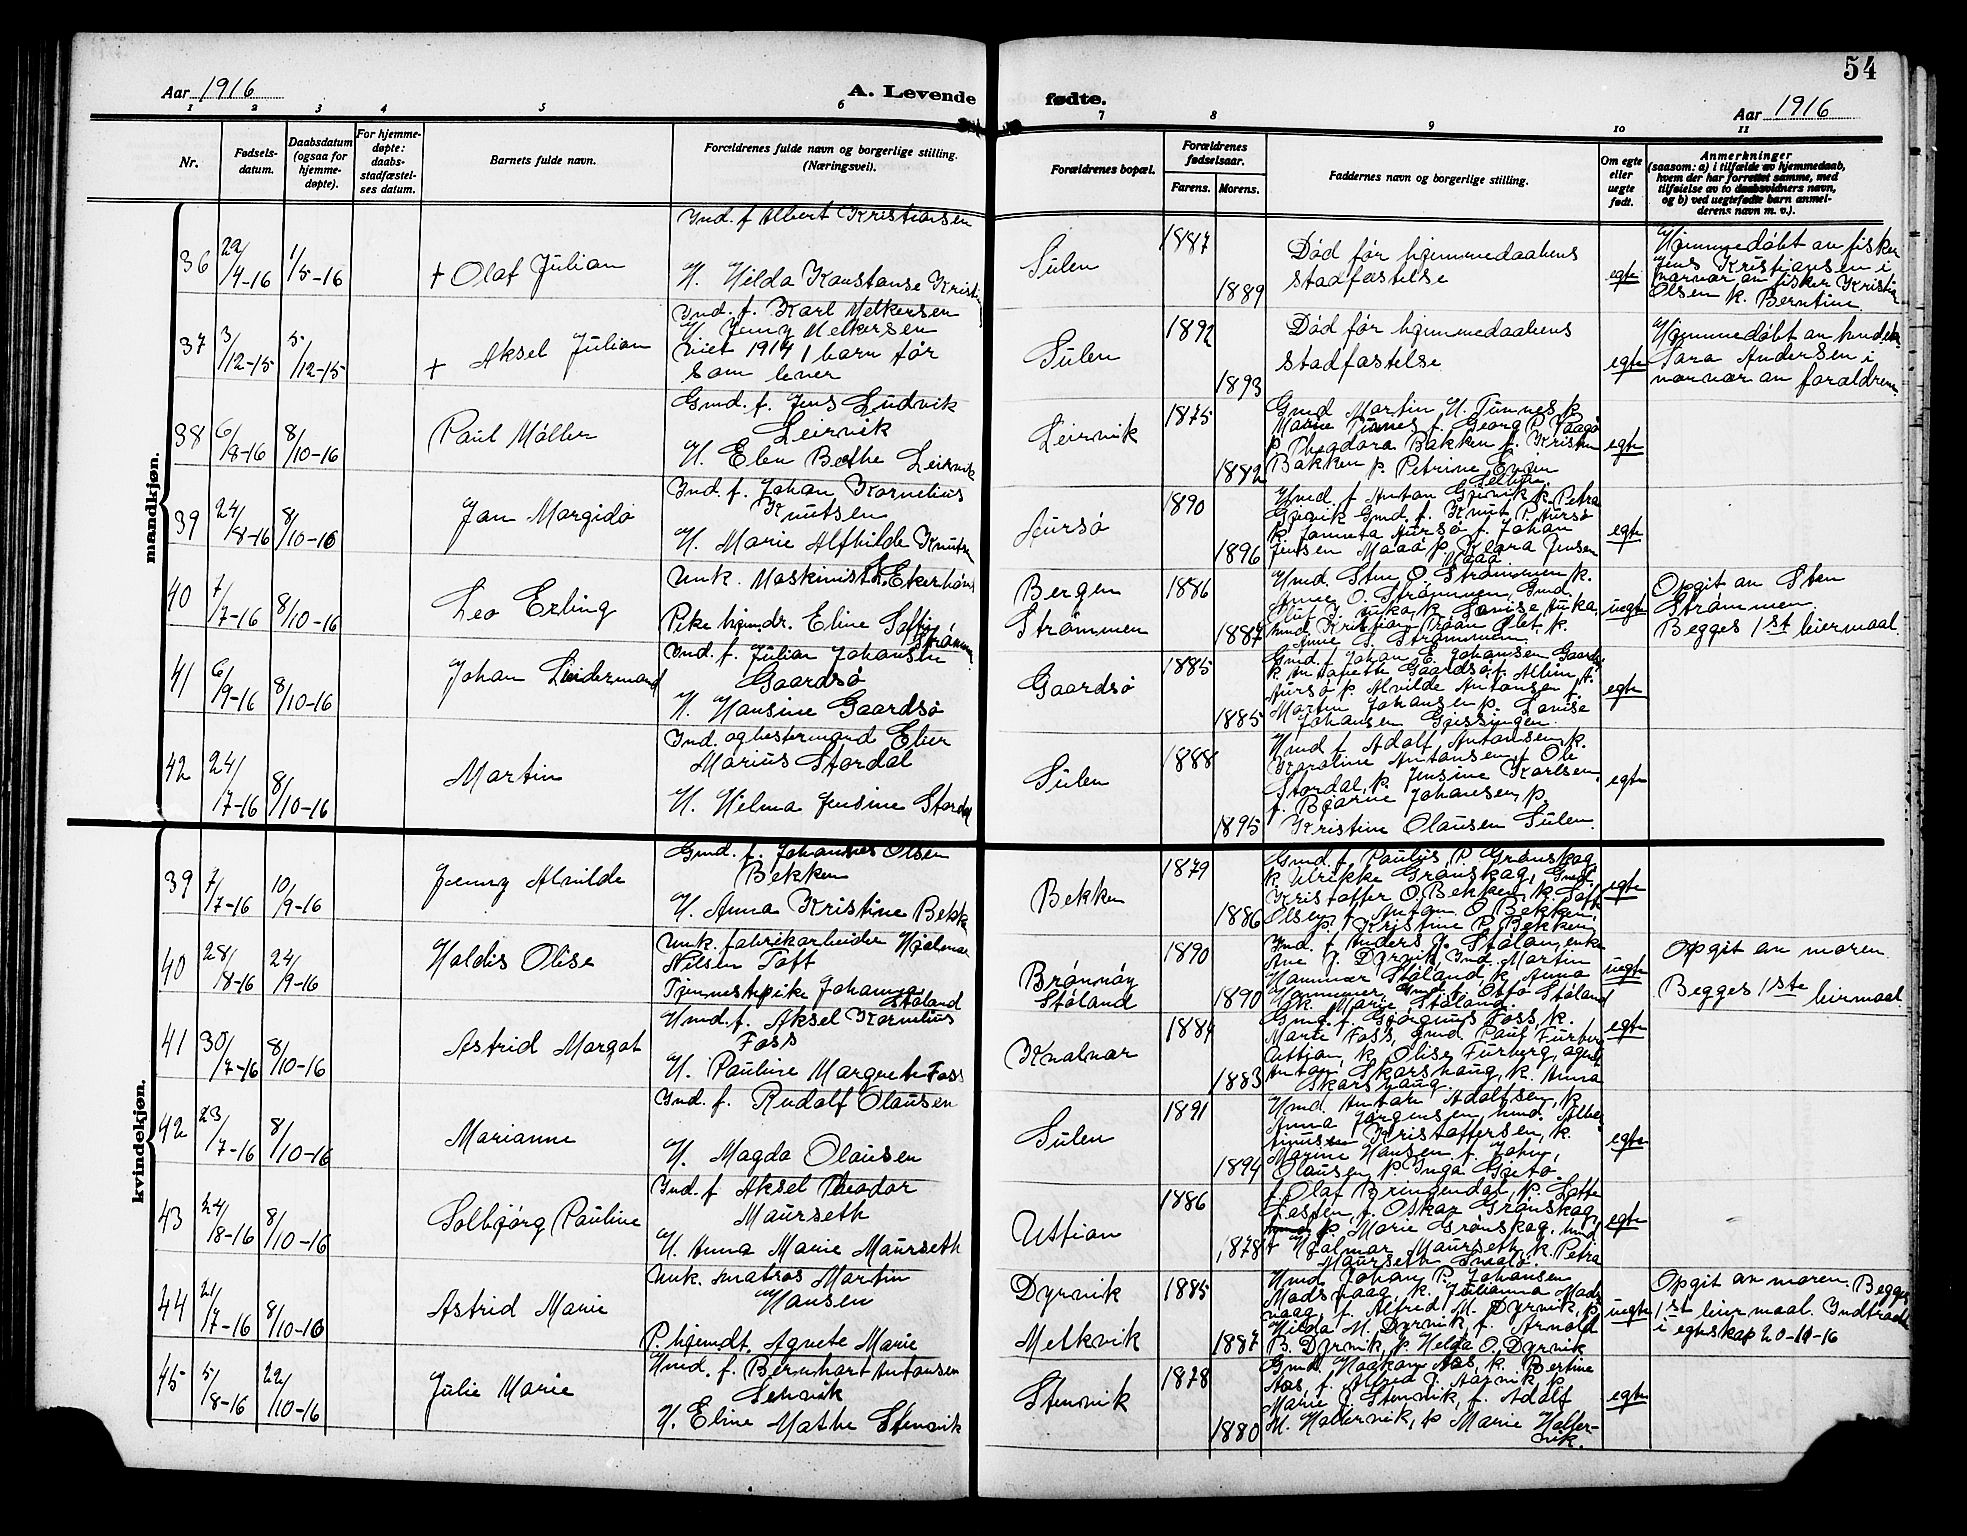 54
Aar 1916
A. Levende fødte.
Aar 1916
1 2 3 4 5 6 7 8 9 10 11
Nr.
Fødsels-
datum.
Daabsdatum
(ogsaa for
hjemme-
døpte).
For hjemme-
døpte:
daabs-
stadfæstel-
ses datum.
Barnets fulde navn.
Forældrenes fulde navn og borgerlige stilling.
(Næringsvei).
Forældrenes bopæl.
Forældrenes
fødselsaar.
Farens. Morens.
Faddernes navn og borgerlige stilling.
Om egte
eller
uegte
født.
Anmerkninger
(saasom: a) i tilfælde av hjemmedaab,
hvem der har forrettet samme, med
tilføielse av to daabsvidners navn,
og b) ved uegtefødte barn anmel-
derens navn m. v.).
mandkjøn.
36 29/4-16 1/5-16 + Olaf Julian
Ind. f Albert Kristiansen
H. Hilda Konstanse Kristi
Sulen 1887 1889
Død før hjemmedaabens
stadfæstelse
egte
Hjemmedøbt av fisker
Jens Kristiansen i
nærvær av fisker Kristia
Olsen k. Berntine
37 3/12-15 5/12-15 + Aksel Julian
Ind. f. Karl Melkersen
H. Jenny Melkersen
viet 1914 1 barn før
som lever
Sulen 1892 1893
Død før hjemmedaabens
stadfæstelse
egte
Hjemmedøbt av
Sara Andersen i
nærvær av forældrene
38 6/8-16 8/10-16 Paul Møller
Gmd. f. Jens Ludvik
Leirvik
H. Elen Bethe Leirvik
Leirvik 1875 1882
Gmd Martin H. Tunnes k
Marie Tunnes f. Georg P. Vaagø
p Theodora Bakken f. Kristen
Bakken p. Petrine
egte
39 24/8-16 8/10-16 Jan Margido
Ind. f. Johan Kornelius
Knutsen
H. Marie Alfhilde Knutse
Aursø 1890 1896
Hmd. f Anton Gjevik k. Petra
Gjevik Gmd. f. Knut P. Aursø
k. Janneta Aursø f. Johan
Jensen Maaø p. Klara Jensen
Maaø
egte
40 7/7-16 8/10-16 Leo Erling
Unk. Maskinist
Pike hjemdr. Eline
Strømmen
Bergen
Strømmen
1886 1887
Hmd. Sten O. Strømmen k.
Anne O. Strømmen, Gmd.
k. Lovise Auka,
hmd Kristian
Anne S. Strømmen.
uegte
Opgit av Sten
Strømmen
Begges 1st leiermaal.
41 6/9-16 8/10-16 Johan Leidermand
Ind. f. Julian Johansen
Gaardsø
H. Hansine Gaardsø
Gaardsø 1885 1885
Gmd. f Johan E. Johansen Gaards
k Gaardsø, f. Albin A.
Aursø p. Alvilde Antonsen f.
Martin Johansen p. Lovise
Johansen Gjessingen.
egte
42 24/7-16 8/10-16 Martin
Ind. og bestermand Elier
Marius Stordal
H. Helma Jensine Stordal
Sulen 1888 1895
Hmd f. Adolf Antonsen k.
Karoline Antonsen f Ole
Stordal, k. Jensine Karlsen,
f. Bjarne Johansen, p
Kristine Olausen Sulen.
egte
kvindekjøn.
39 7/7-16 10/9-16 Jenny Alvilde
Gmd. f. Johannes Olsen
Bekken
H. Anna Kristine Bekk
Bekken 1879 1886
Gmd. f Paulus P. Grønskag
k Ulrikke Grønskag, Gmd.
Kristoffer O. Bekken, k.
Olsen, f Anton O. Bekken,
p. Kristine P. Bekken
egte
40 28/8-16 24/9-16 Haldis Olise
Unk. fabrikarbeider Hjalmar
Nielsen Toft
Tjenestepike Johanna
Støland
Brønnøy
Støland
1890 1890
Ind. f Anders J. Støland, enke
Ane J. Dyrvik, Ind. Martin
Hammer Støland, k. Anna
Hammer, Gmd. f. Otto Støland
k. Marie Støland.
uegte
Opgit av moren.
Begges 1ste leiermaal.
41 30/7-16 8/10-16 Astrid Margot
Hmd. f. Aksel Kornelius
Foss
H. Pauline Margrete Foss
Kvalvær 1884 1883
Gmd. f. Foss, k.
Marie Foss, Gmd. Paul Furberg
Uttian, k. Olise Furberg, agent
Anton Skarshaug, k. Anna
Skarshaug.
egte
42 23/7-16 8/10-16 Marianne
Ind. f. Rudolf Olausen
H. Magda Olausen
Sulen 1891 1894
Hmd. Anton Adolfsen, k.
Anna Jørgensen, hmd. Albe
Kristoffersen, k.
Marine Hansen f. John
Olausen, p Inga
egte
43 24/8-16 8/10-16 Solbjørg Pauline
Ind. f Aksel Theodor
Maurseth
H. Anna Marie Maurseth
Uttian 1886 1878
f Olaf Bringendal, p. Lotte
Jespen, f. Oskar Grønskag,
p. Marie Grønskag. hmd
f Hjalmar Maurseth, k. Petra
Maurseth Smalø.
egte
44 21/7-16 8/10-16 Astrid Marie
Unk. matros Martin
Hansen
P. hjemdt. Agnete Marie
Dyrvik
Melkvik
1885 1887
Hmd. Johan P. Johansen
Madsvaag, k. Julianna Mads-
vaag, f. Alfred M. Dyrvik, p
Hilda M. Dyrvik, f. Arnold
B. Dyrvik, p. Helga O. Dyrvik
uegte
Opgit av moren. Begges
1st leiermaal. Indtraadt
i egteskap 20-11-16
45 5/8-16 22/10-16 Julie Marie
Hmd. f. Bernhart Antonsen
Stenvik
H. Eline Mathe Stenvik
Stenvik 1878 1880
Gmd. Haakon Aas, k. Bertine
Aas, f. Alfred J. Aarvik, p.
Marie J. Stenvik, f. Adolf
M. Hallervik, p Marie Haller-
vik.
egte